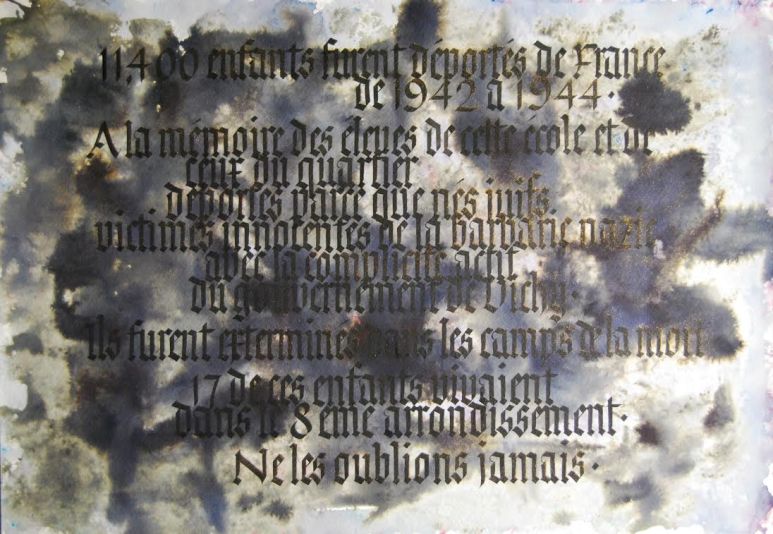 11.400 enfants furent déportés de France
de 1942 à 1944.
A la mémoire des élèves de cette école et de
ceux du quartier
déportés parce que nés juifs,
victimes innocentes de la barbarie nazie
avec la complicité actif
du gouvernement de Vichy.
Ils furent exterminés dans les camps de la mort
17 de ces enfants vivaient
dans le 8 ème arrondissement.
Ne les oublions jamais.